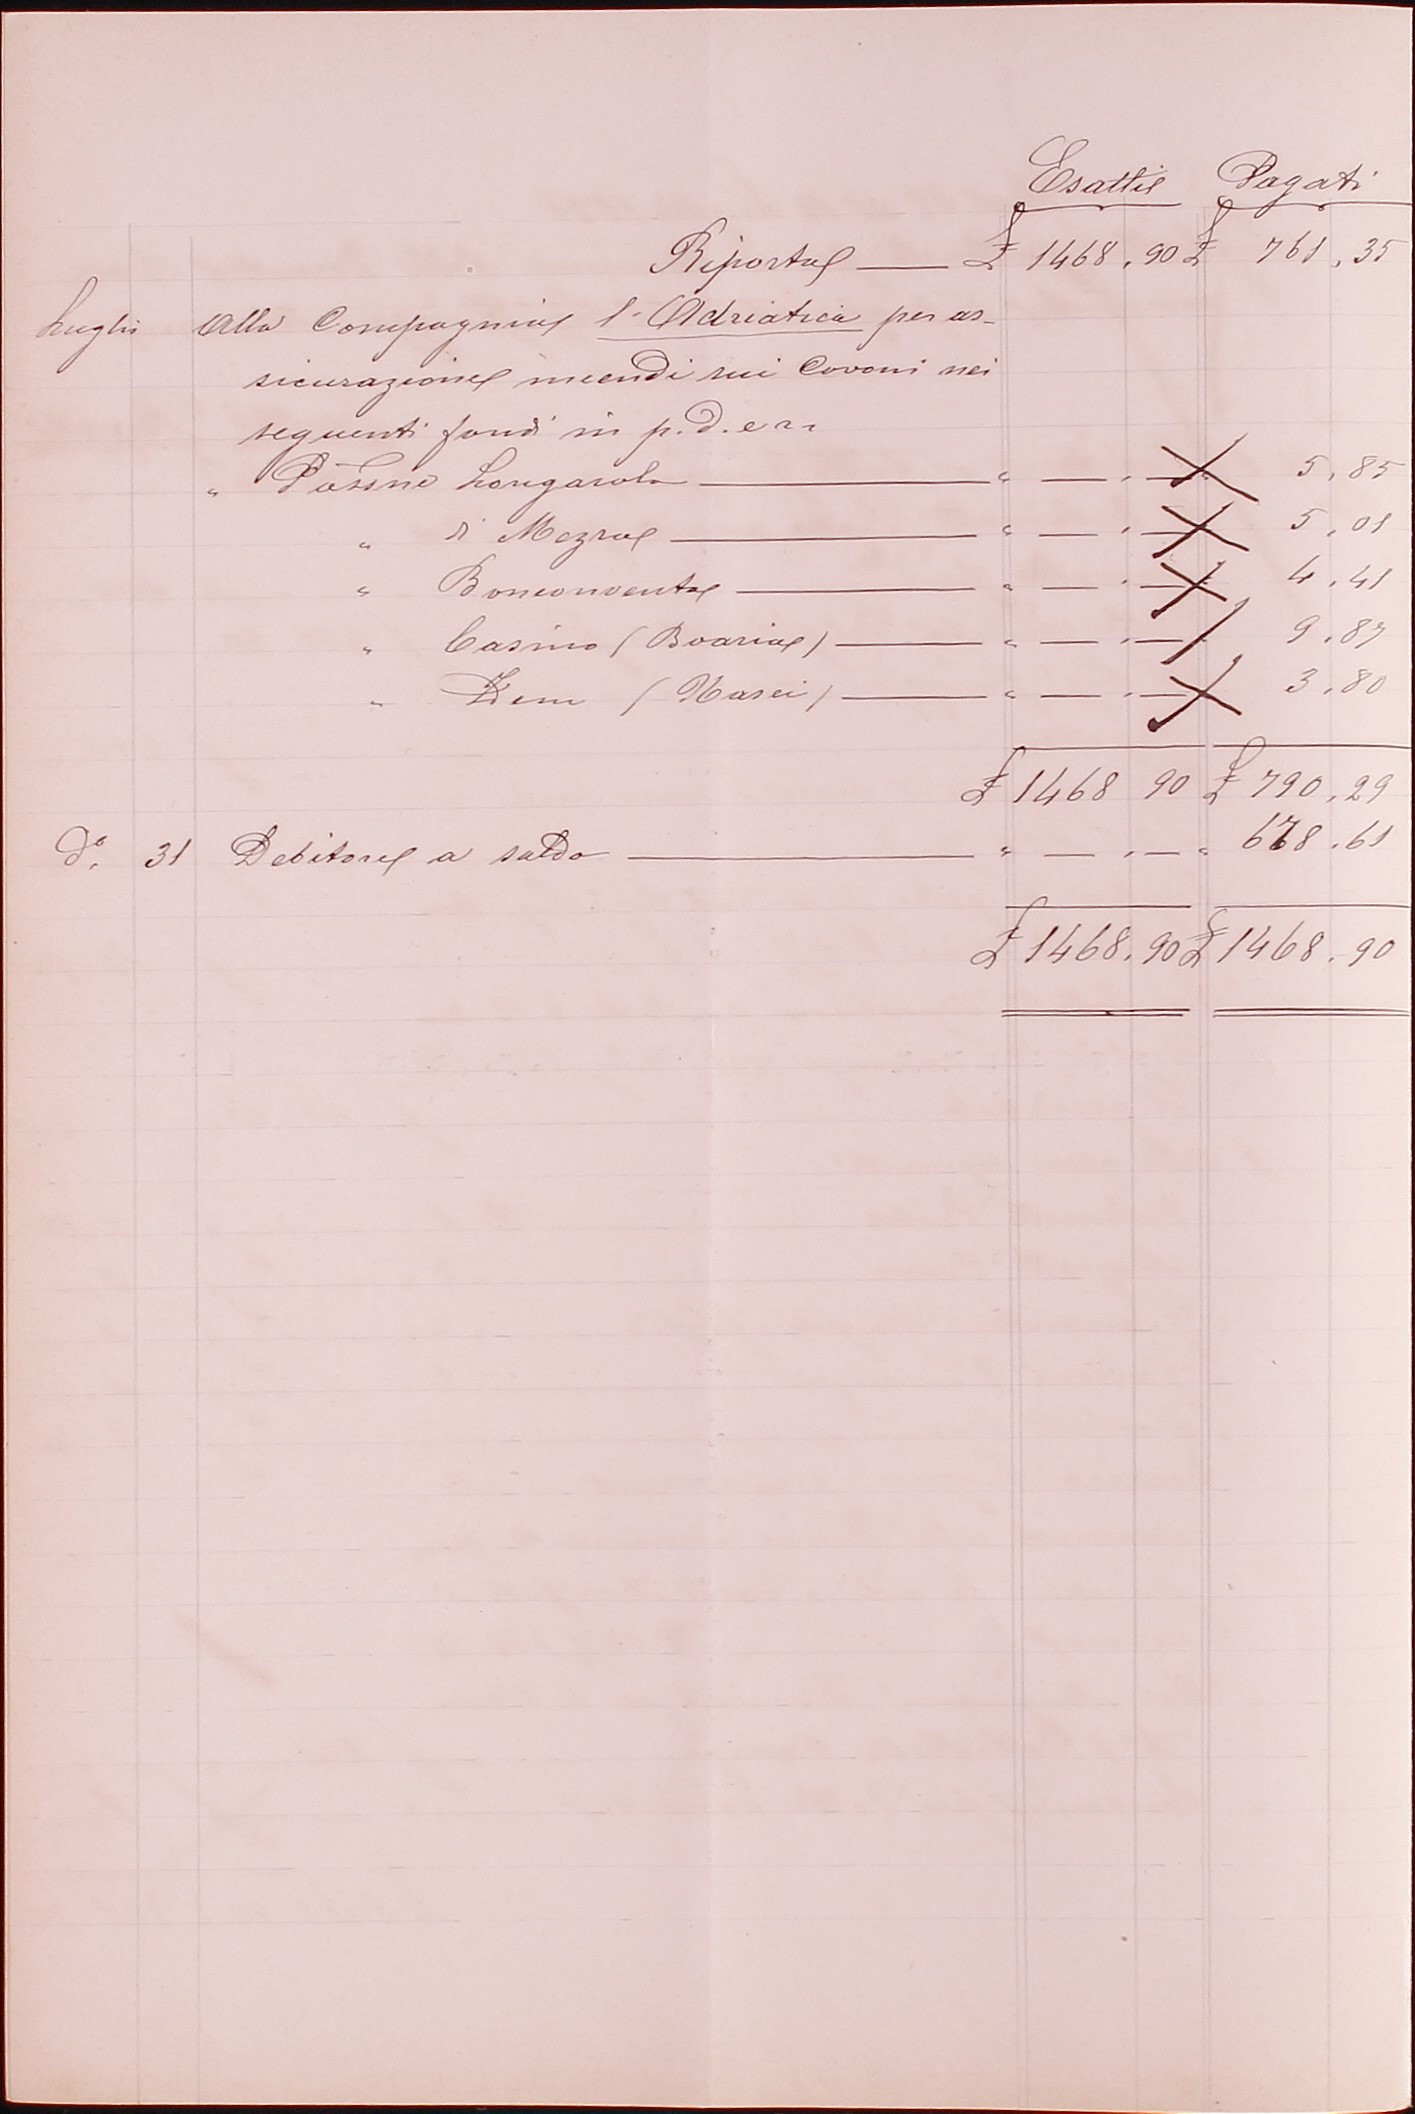 Esatte Pagati
Riporta £ 1468.90 £ 761.35
Luglio Alla Compagnia l'Adriatica per as-
sicurazione incendi sui Covoni nei
seguenti fondi in p.d.e
" Possne Longarola " — . — " 5.85
" di Mezza " — . — " 5.01
" Bonconvento " — . — " 4.41
" Casino (Boaria) " — . — " 9.87
" Idem (Vasei) " — . — " 3.80
£ 1468 90 £ 790.29
do. 31 Debitore a saldo " — . — " 678.61
£ 1468.90 £ 1468.90